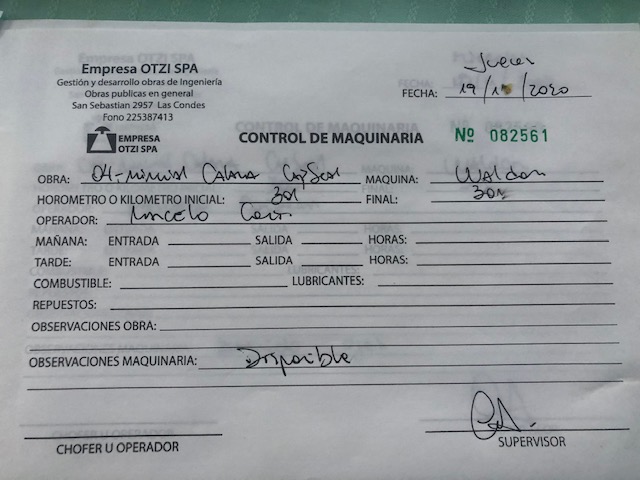 Empresa OTZI SPA
Gestión y desarrollo obras de Ingeniería
Obras publicas en general
San Sebastian 2957 Las Condes
Fono 225387413
Jueves
FECHA: 19/ /2020
EMPRESA
OTZI SPA
CONTROL DE MAQUINARIA
Nº 082561
OBRA: MAQUINA: Waldon
HOROMETRO O KILOMETRO INICIAL: 301 FINAL: 301
OPERADOR: Marcelo
MAÑANA: ENTRADA SALIDA HORAS:
TARDE: ENTRADA SALIDA HORAS:
COMBUSTIBLE: LUBRICANTES:
REPUESTOS:
OBSERVACIONES OBRA:
OBSERVACIONES MAQUINARIA: Disponible
CHOFER U OPERADOR
SUPERVISOR